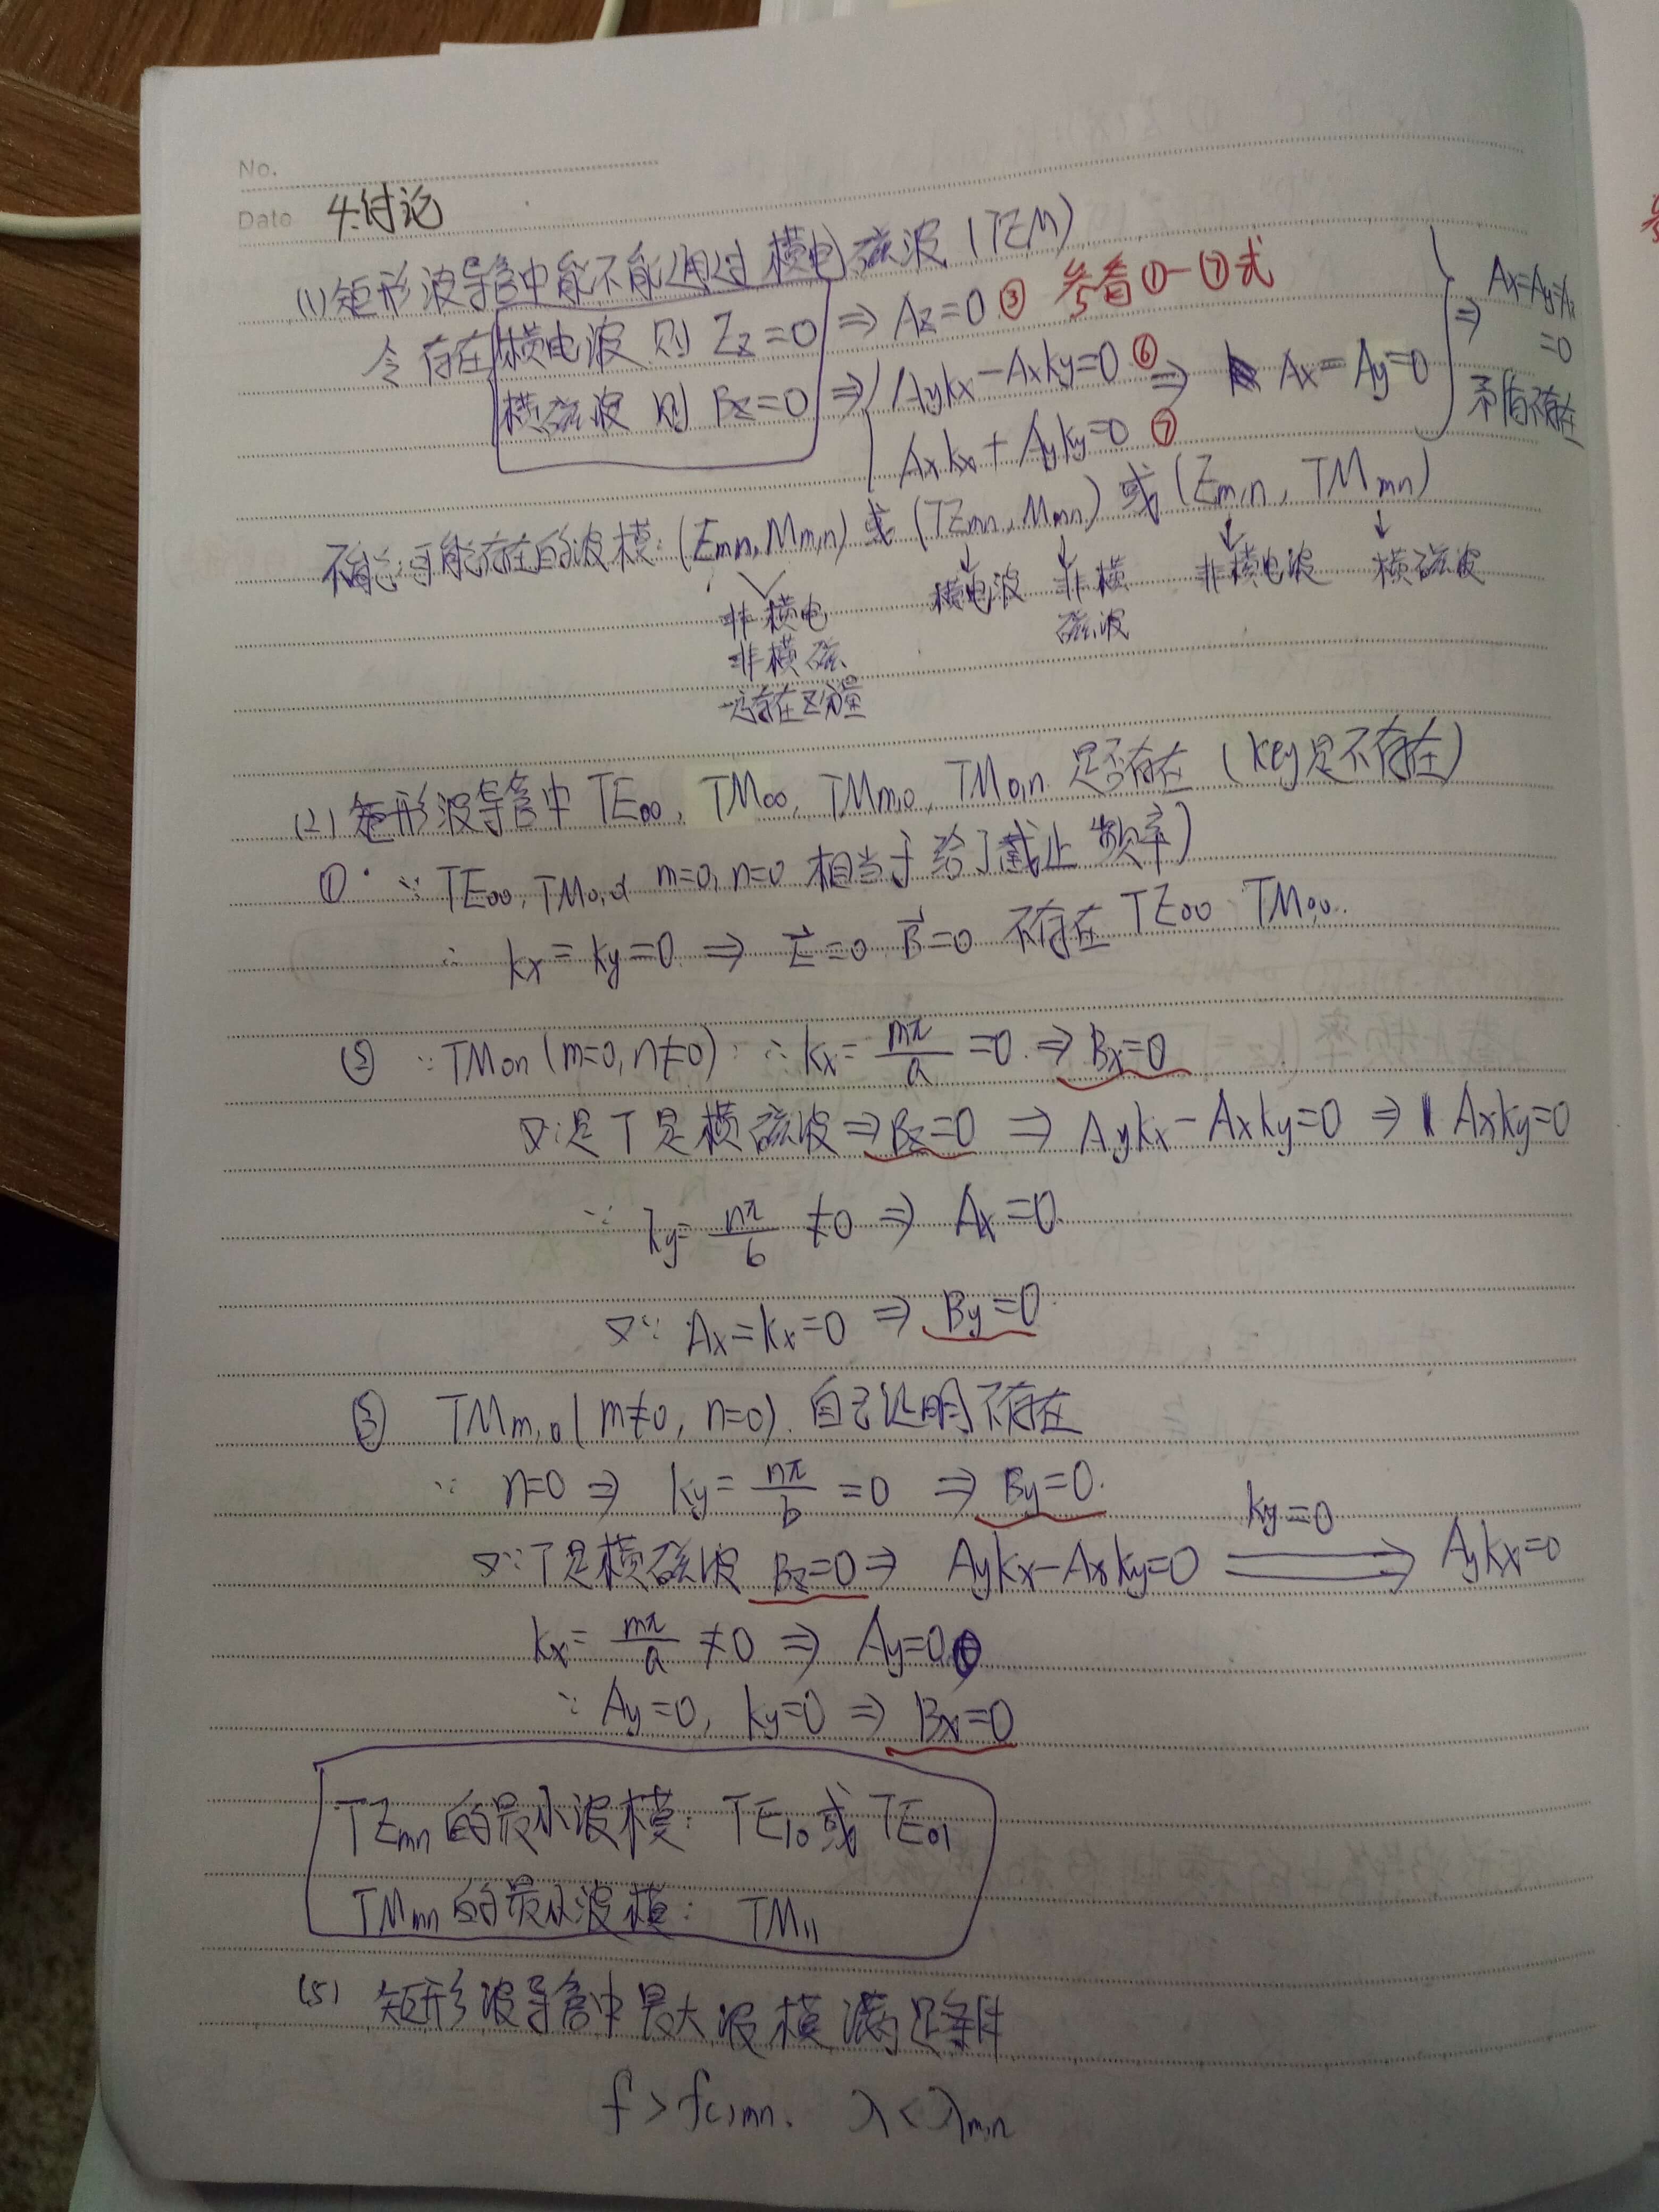 No.
Date 4.讨论
(1) 矩形波导管中能不能通过横电磁波 (TEM)
令存在横电波 则 Ez=0 ⇒ Az=0 ③ 参看①-⑦式
横磁波 则 Bz=0 ⇒ { Aykx-Axky=0 ⑥ ⇒ Ax=Ay=0
Axkx+Ayky=0 ⑦
} ⇒ Ax=Ay=Az
=0
矛盾不存在
可能存在的波模: (Emn, Mmn) 或 (TEmn, Mmn) 或 (Em,n, TMmn)
↓ ↓ ↓ ↓
非横电 横电波 非横 非横电波 横磁波
非横磁 磁波
存在Z分量
(2) 矩形波导管中 TE00, TM00, TMm,0, TM0,n 是否存在 (key是不存在)
① ∵ TE00, TM0,0 m=0, n=0 相当于给了截止频率)
∴ kx=ky=0 ⇒ E⃗=0 B⃗=0 不存在 TE00 TM0,0.
② ∵ TM0n (m=0, n≠0) ∴ kx=mπ/a=0. ⇒ Bx=0
又∵是T是横磁波⇒Bz=0 ⇒ Aykx-Axky=0 ⇒ Axky=0
∵ ky=nπ/b ≠0 ⇒ Ax=0
又∵ Ax=kx=0 ⇒ By=0
③ TMm,0 (m≠0, n=0). 自己证明不存在
∵ n=0 ⇒ ky=nπ/b=0 ⇒ By=0.
又∵T是横磁波 Bz=0⇒ Aykx-Axky=0 ky=0 ⇒ Aykx=0
kx=mπ/a ≠0 ⇒ Ay=0
∵ Ay=0, ky=0 ⇒ Bx=0
TEmn的最小波模: TE10或TE01
TMmn的最小波模: TM11
(5) 矩形波导管中最大波模满足条件
f>fc,mn. λ<λm,n